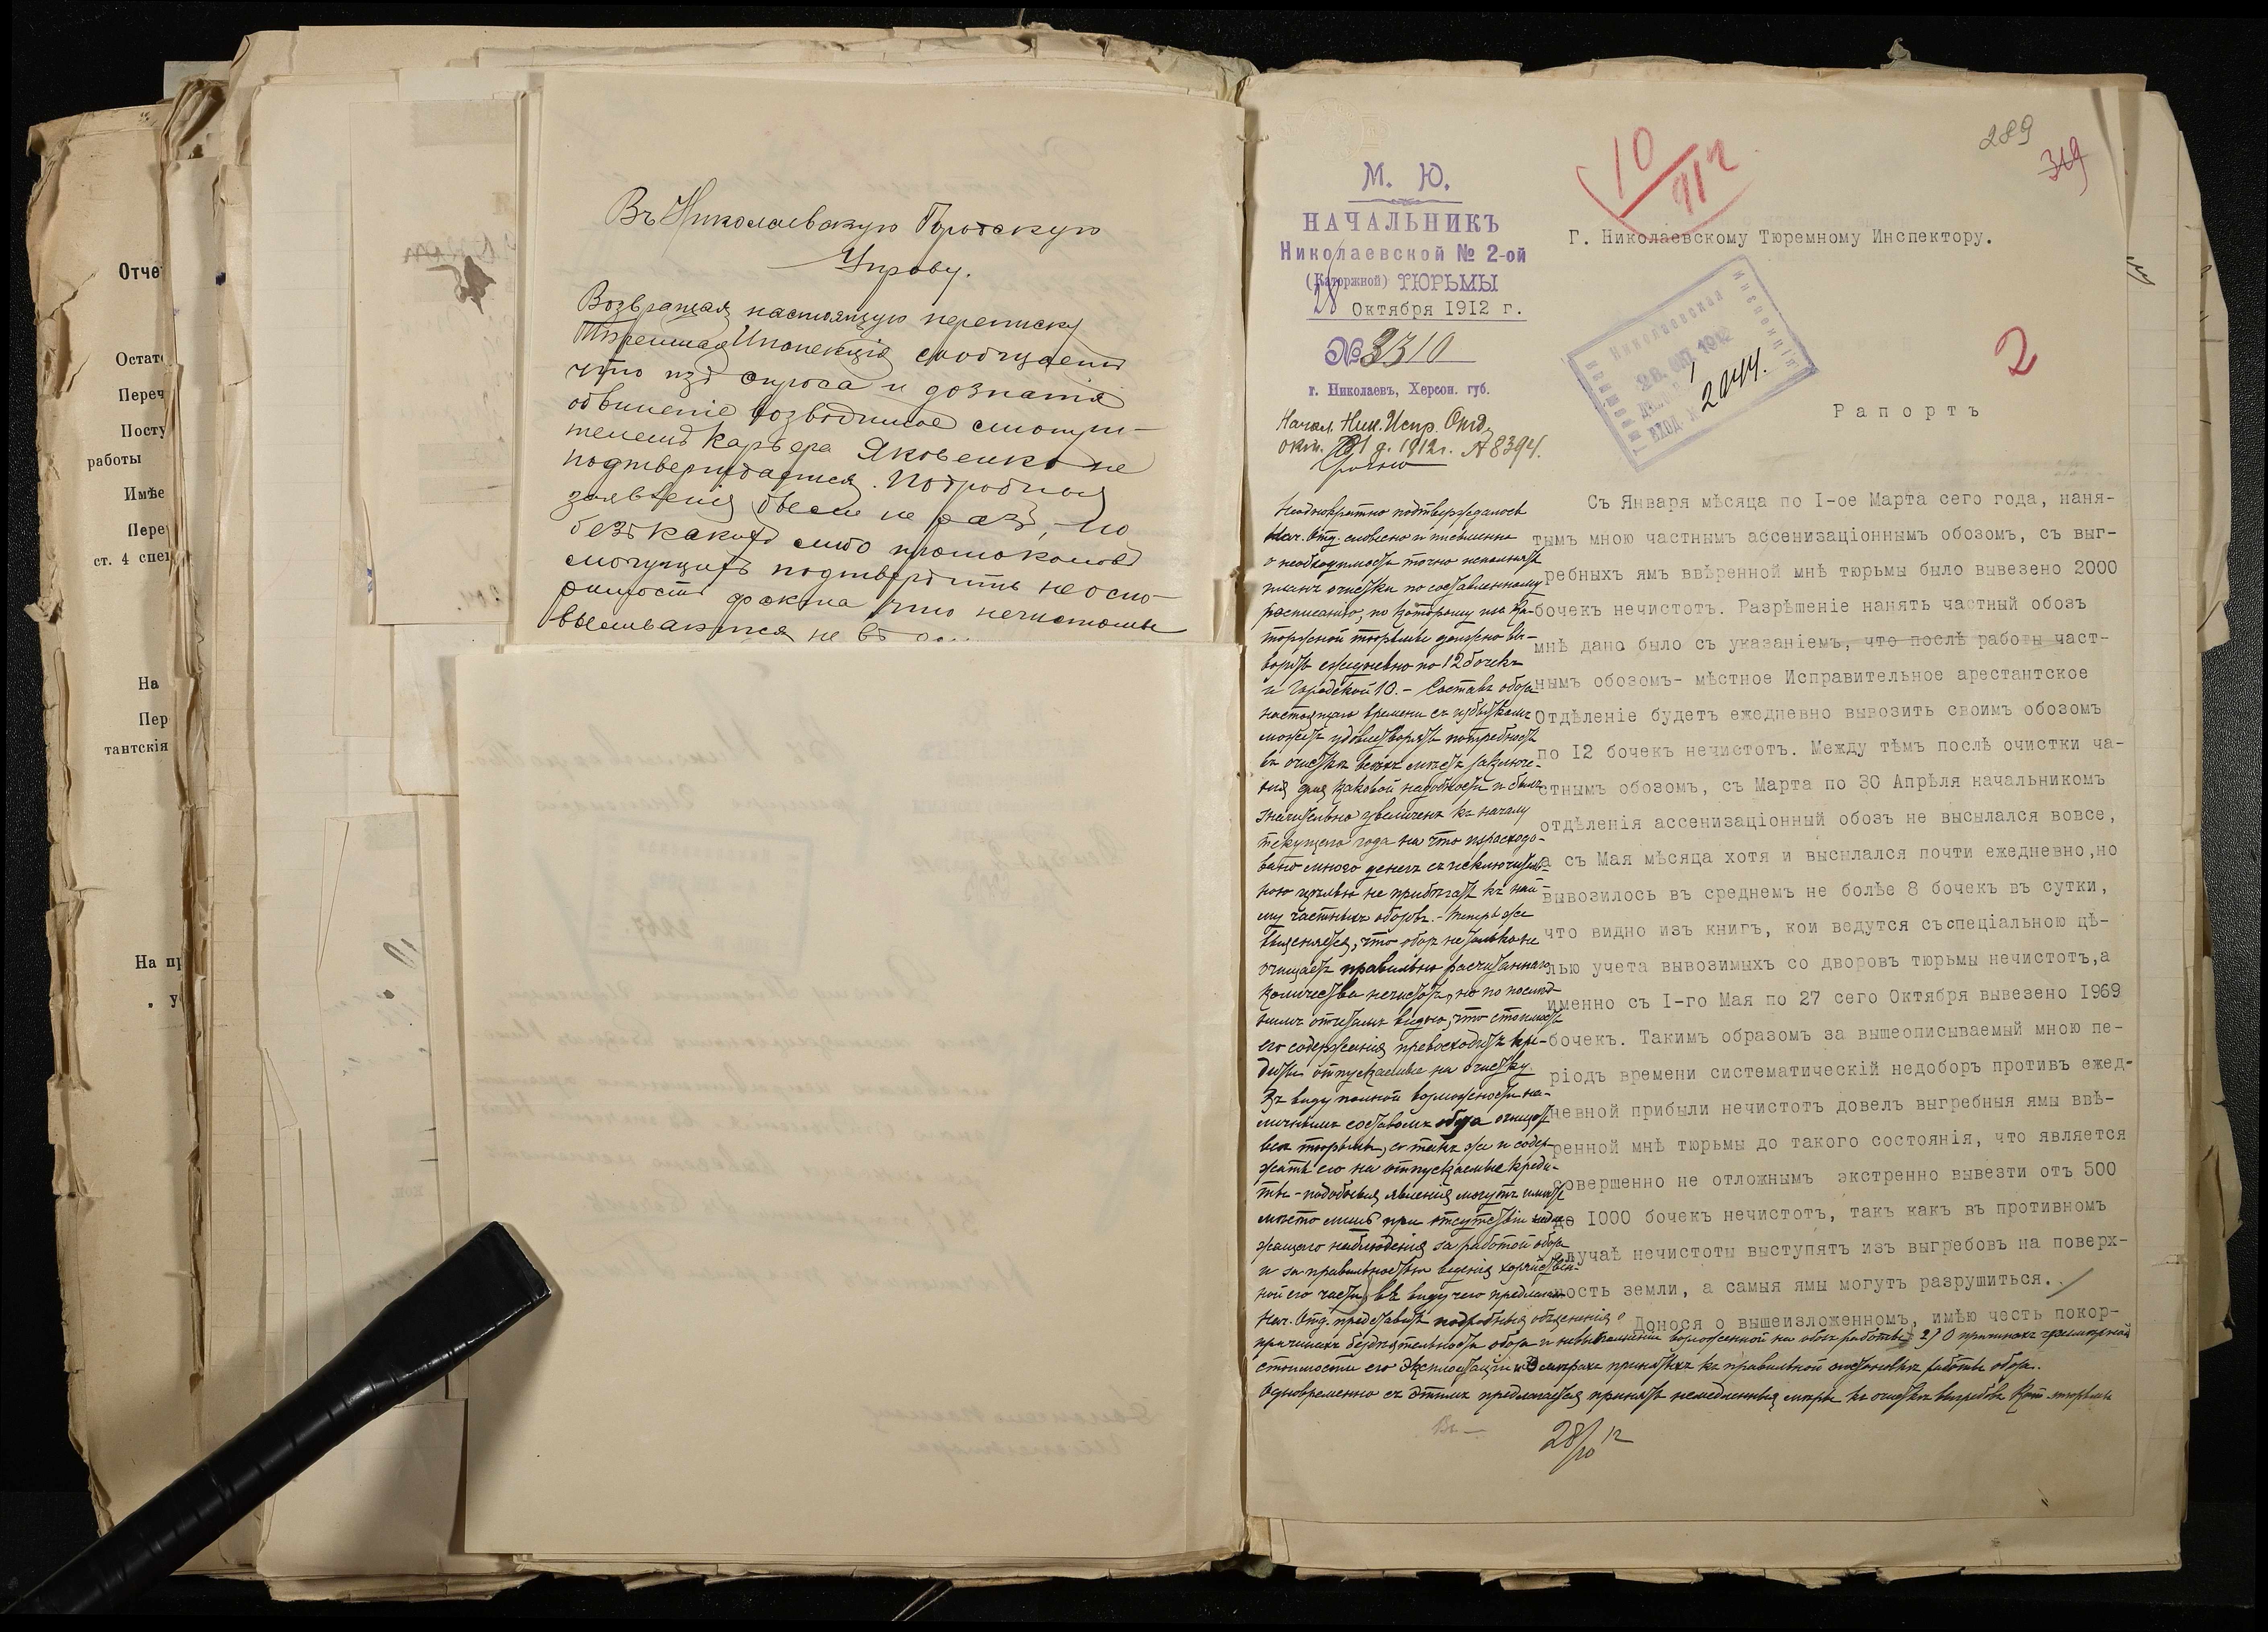 Отче
Остат
Переч
Посту
работы
Имѣе
Пере
ст. 4 спец
На
Пер
тантскія
На пр
Въ Николаевскую Городскую
Управу.
Возвращая настоящую переписку
Тюремная Инспекція сообщаетъ
что изъ опроса и дознанія
обвиненіе возводимое смотри-
телемъ Карьера Яковенко не
подтверждается. Подробныя
заявленія были не разъ, но
безъ какихъ либо протоколовъ
могущихъ подтвердить
факта что нечистоты
выливаются не въ
289
319
10/912
М. Ю.
НАЧАЛЬНИКЪ
Николаевской № 2-ой
(Каторжной) ТЮРЬМЫ
28 Октября 1912 г.
№ 3310
г. Николаевъ, Херсон. губ.
Г. Николаевскому Тюремному Инспектору.
Николаевская
Тюремная Инспекція
28. ОКТ. 1912
ВХОД. № 2044.
2
Рапортъ
Начал. Ник. Испр. Отд.
окт. 31 д. 1912 г. № 8394.
Срочно
Съ Января мѣсяца по I-ое Марта сего года, наня-
тымъ мною частнымъ ассенизаціоннымъ обозомъ, съ выг-
ребныхъ ямъ ввѣренной мнѣ тюрьмы было вывезено 2000
бочекъ нечистотъ. Разрѣшеніе нанять частный обозъ
мнѣ дано было съ указаніемъ, что послѣ работы част-
нымъ обозомъ- мѣстное Исправительное арестантское
Отдѣленіе будетъ ежедневно вывозить своимъ обозомъ
по I2 бочекъ нечистотъ. Между тѣмъ послѣ очистки ча-
стнымъ обозомъ, съ Марта по 30 Апрѣля начальникомъ
отдѣленія ассенизаціонный обозъ не высылался вовсе,
а съ Мая мѣсяца хотя и высылался почти ежедневно,но
вывозилось въ среднемъ не болѣе 8 бочекъ въ сутки,
что видно изъ книгъ, кои ведутся съспеціальною цѣ-
лью учета вывозимыхъ со дворовъ тюрьмы нечистотъ,а
именно съ I-го Мая по 27 сего Октября вывезено I969
бочекъ. Такимъ образомъ за вышеописываемый мною пе-
ріодъ времени систематическій недоборъ противъ ежед-
невной прибыли нечистотъ довелъ выгребныя ямы ввѣ-
ренной мнѣ тюрьмы до такого состоянія, что является
совершенно не отложнымъ экстренно вывезти отъ 500
до I000 бочекъ нечистотъ, такъ какъ въ противномъ
случаѣ нечистоты выступятъ изъ выгребовъ на поверх-
ность земли, а самыя ямы могутъ разрушиться.
Донося о вышеизложенномъ, имѣю честь покор-
Неоднократно подтверждалось
Нач. Отд. словесно и письменно
о необходимости точно исполнять
планъ очистки по составленному
расписанію, по которому изъ Ка-
торжной тюрьмы должно вы-
возить ежедневно по 12 бочекъ
и Городской 10. - Составъ обоза
настоящаго времени съ избыткомъ
можетъ удовлетворять потребность
въ очисткѣ всѣхъ мѣстъ заключе-
нія для каковой надобности и былъ
значительно увеличенъ къ началу
текущаго года на что израсходо-
вано много денегъ съ исключитель-
ною цѣлью не прибѣгать къ най-
му частныхъ обозовъ. - Теперь же
выясняется, что обозъ не только не
очищаетъ правильно расчитаннаго
количества нечистотъ, но по послѣд-
нимъ отчетамъ видно, что стоимость
его содержанія превосходитъ кре-
диты отпускаемые на очистку.
Въ виду полной возможности на-
личнымъ составомъ обоза очищать
всѣ тюрьмы, а также и содер-
жать его на отпускаемые креди-
ты - подобныя явленія могутъ имѣть
мѣсто лишь при отсутствіи надле-
жащаго наблюденія за работой обоза
и за правильностью веденія хозяйствен-
ной его части, въ виду чего предлагаю
Нач. Отд. представить подробныя объясненія о
причинахъ бездѣятельности обоза и невыполненіи возложенной на него работы 2) О причинахъ чрезмѣрной
стоимости его эксплоатаціи и 3 мѣрахъ принятыхъ къ правильной постановкѣ работы обоза.
Одновременно съ этимъ предлагается принять немедленныя мѣры къ очисткѣ выгребовъ Кат. тюрьмы
28/10 12